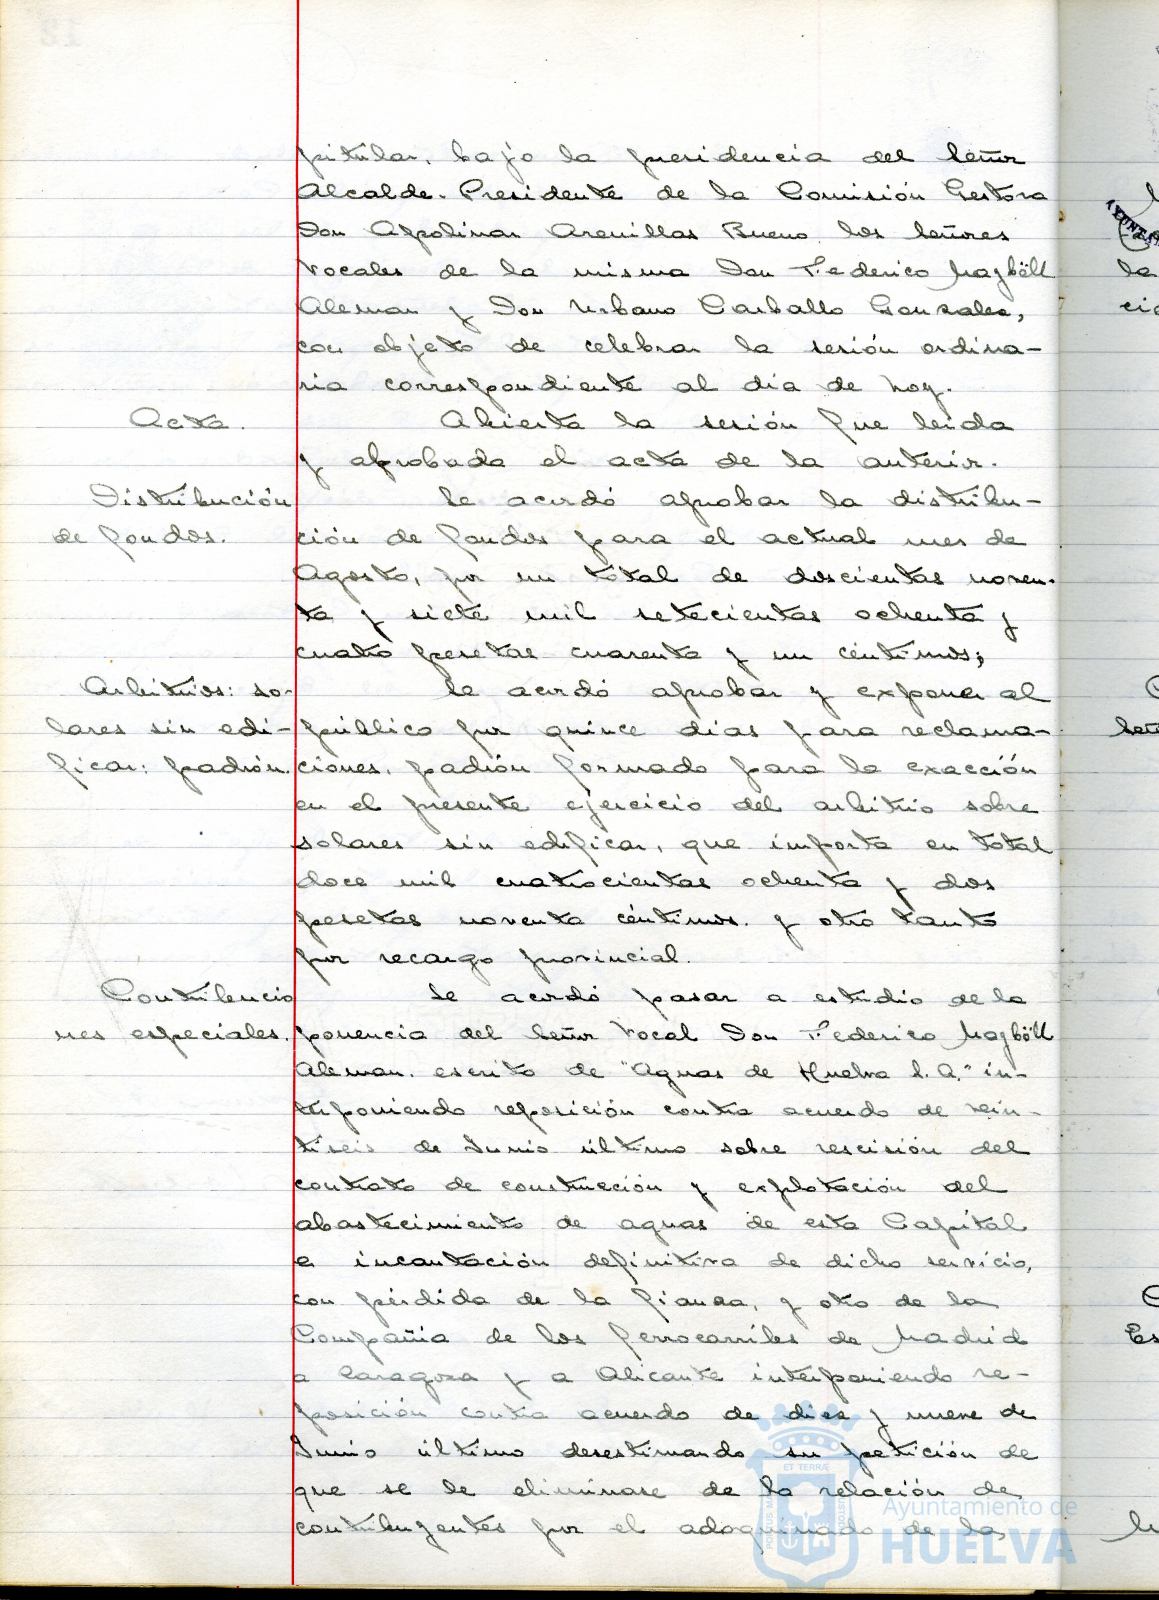 pitular, bajo la presidencia del Señor
Alcalde-Presidente de la Comisión Gestora
Don Apolinar Arenillas Bueno los Señores
Vocales de la misma Don Federico Mayböll
Aleman y Don Urbano Carballo Gonzalez,
con objeto de celebrar la sesión ordina-
ria correspondiente al dia de hoy.
Acta.
Abierta la sesión fue leida
y aprobada el acta de la anterior.
Distribución
de fondos.
Se acordó aprobar la distribu-
ción de fondos para el actual mes de
Agosto, por un total de doscientas noven-
ta y siete mil setecientas ochenta y
cuatro pesetas cuarenta y un céntimos;
Arbitrios: so-
lares sin edi-
ficar: padrón.
Se acordó aprobar y exponer al
público por quince dias para reclama-
ciones, padrón formado para la exacción
en el presente ejercicio del arbitrio sobre
solares sin edificar, que importa en total
doce mil cuatrocientas ochenta y dos
pesetas noventa céntimos. y otro tanto
por recargo provincial.
Contribucio
nes especiales.
Se acordó pasar a estudio de la
ponencia del Señor Vocal Don Federico Mayböll
Aleman. escrito de "Aguas de Huelva S.A." in-
terponiendo reposición contra acuerdo de vein-
tiseis de Junio último sobre rescisión del
contrato de construcción y explotación del
abastecimiento de aguas de esta Capital
e incautación definitiva de dicho servicio,
con pérdida de la fianza, y otro de la
Compañia de los ferrocarriles de Madrid
a Zaragoza y a Alicante interponiendo re-
posición contra acuerdo de diez y nueve de
Junio último desestimando su petición de
que se le eliminase de la relación de
contribuyentes por el adoquinado de la
Ayuntamiento de
HUELVA